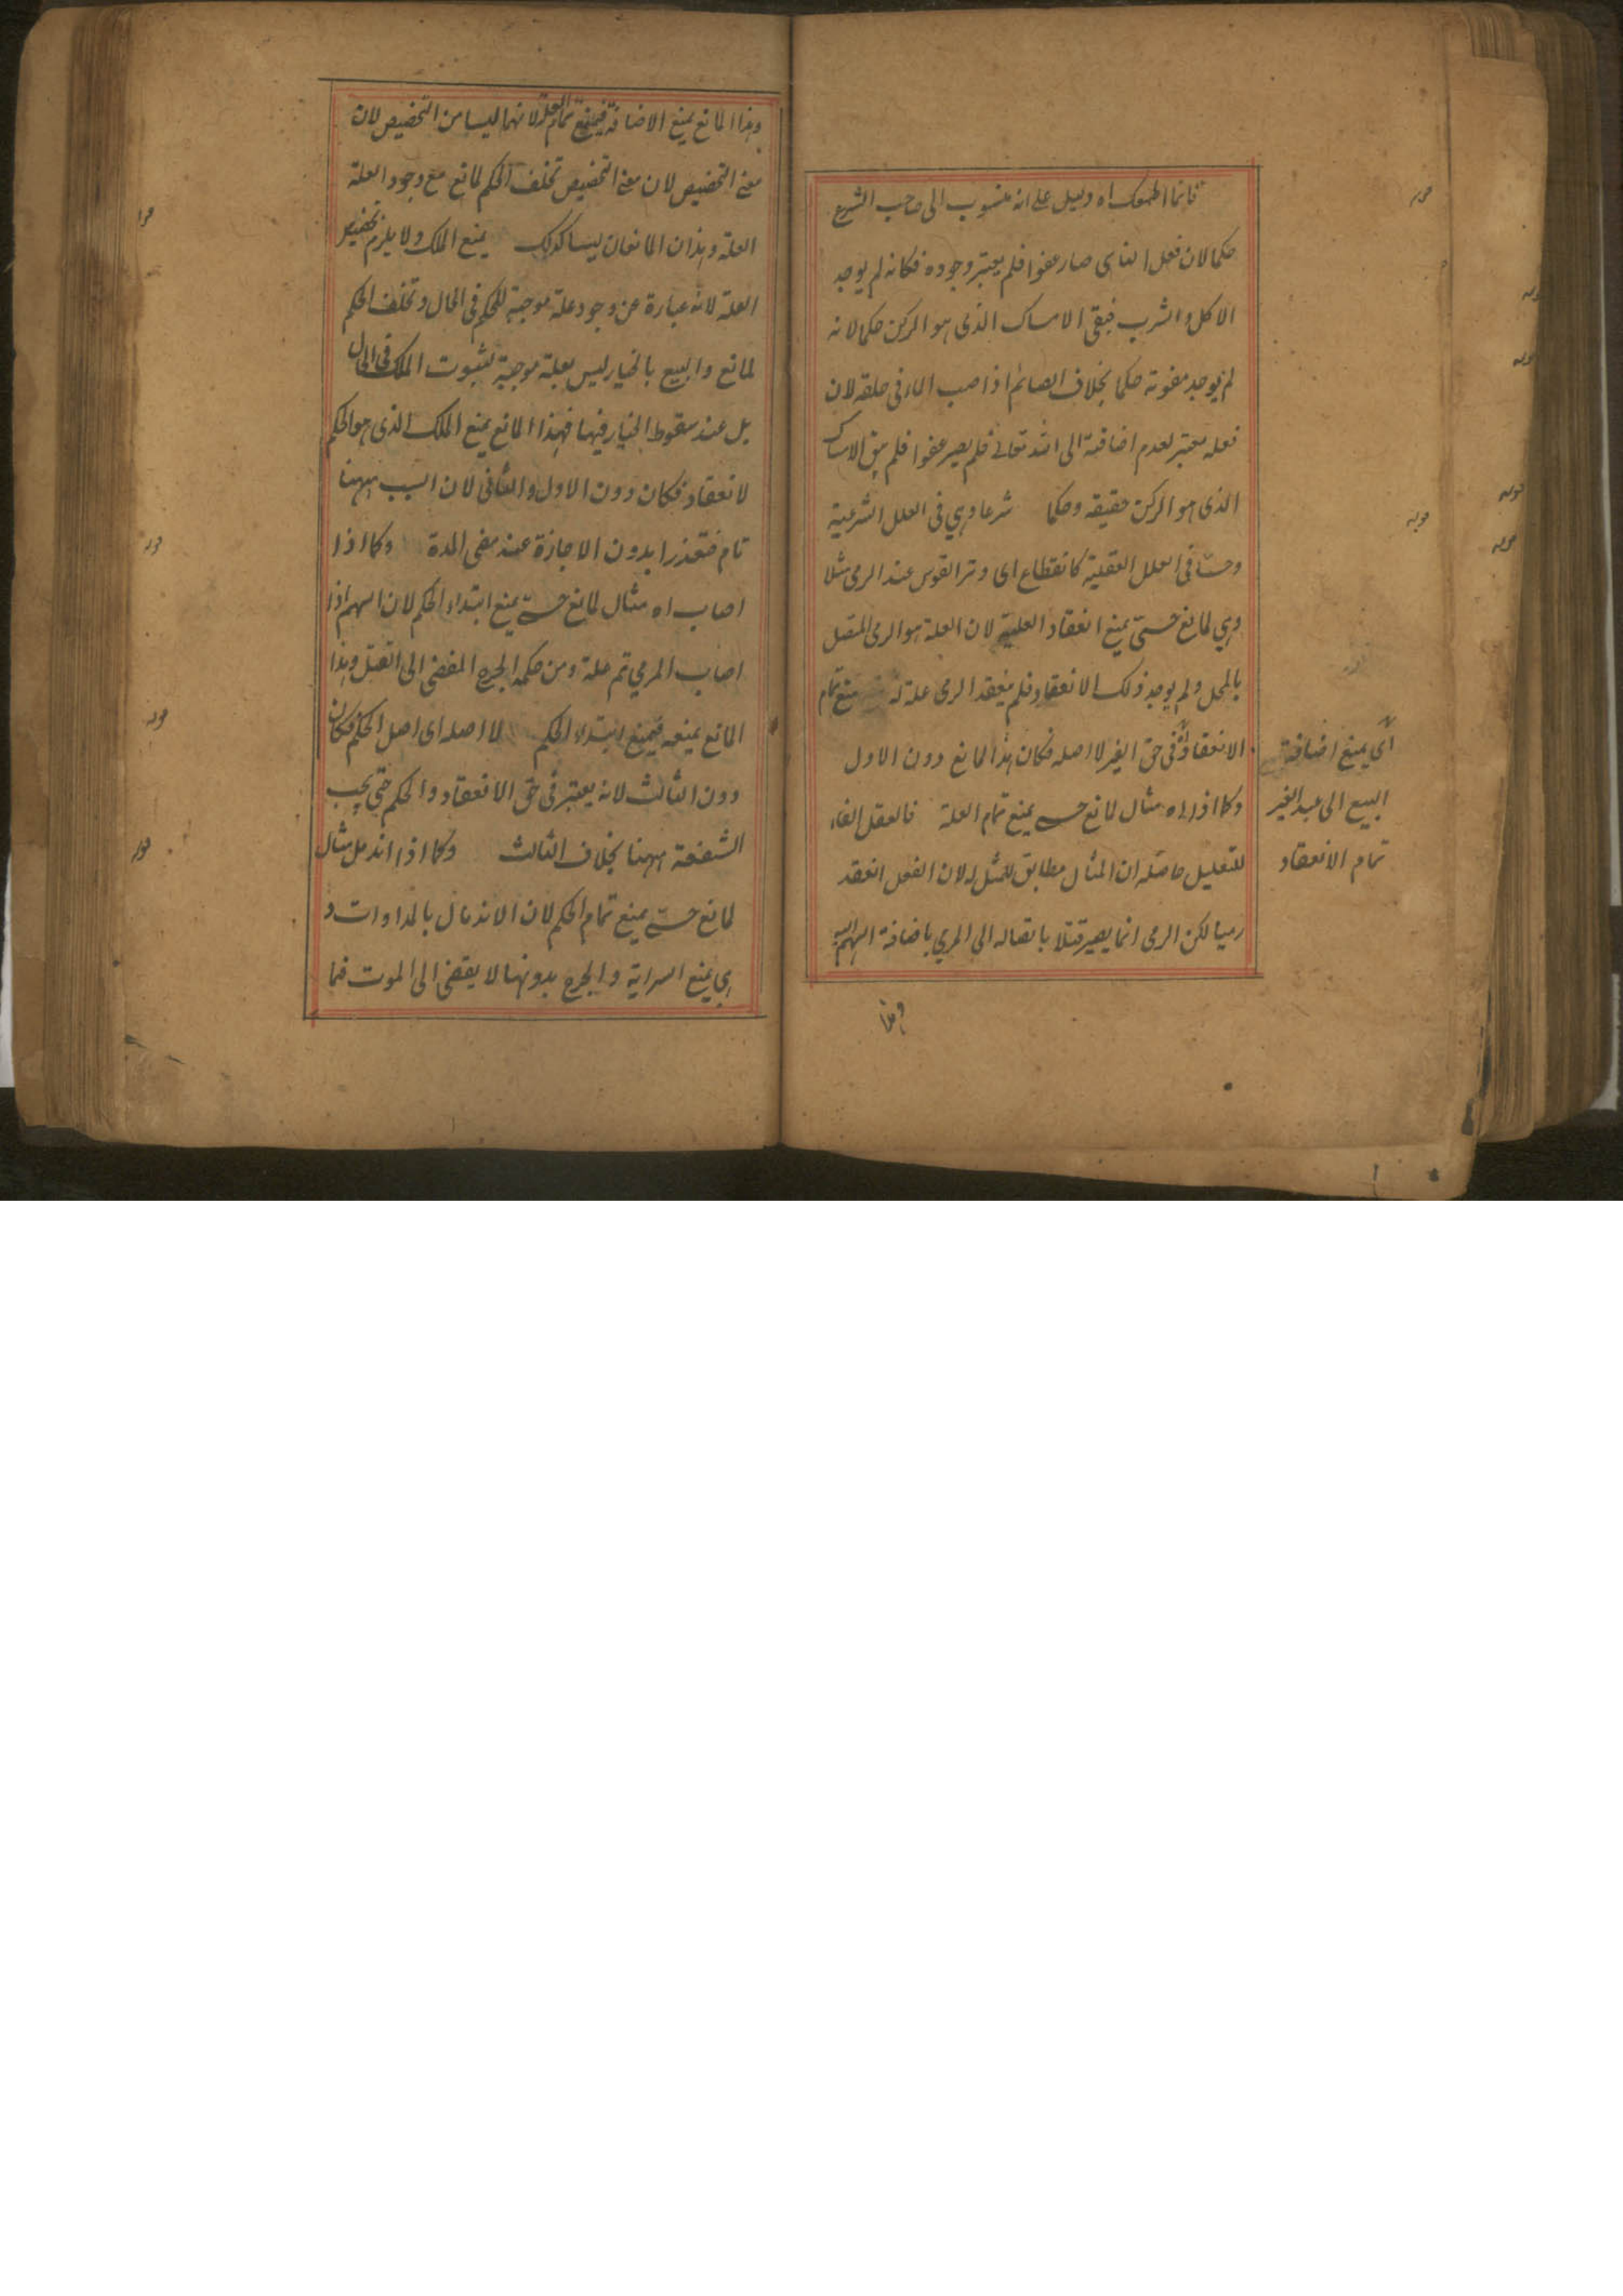 فانما اطعمك اه دليل على انه منسوب الى صاحب الشرع
حكما لان فعل الناسى صار عفوا فلم يعتبر وجوده فكانه لم يوجد
الاكل والشرب فبقى الامساك الذى هو الركن حكما لانه
لم يوجد مفوته حكما بخلاف الصائم اذا صب الماء فى حلقه لان
فعله معتبر لعدم اضافته الى الله تعالى فلم يصير عفوا فلم يبق الامساك
الذى هو الركن حقيقة وحكما شرعا وهي فى العلل الشرعية
وحسا فى العلل العقلية كانقطاع اى وتر القوس عند الرمى مثلا
وهي لمانع حسى يمنع انعقاد العلية لان العلة هو الرمى المتصل
بالمحل ولم يوجد ذلك الانعقاد فلم ينعقد الرمى علة له منع تمام
الانعقاد فى حق الغير لا اصله فكان هذا المانع دون الاول
وكما اذا اه مثال لمانع حسى يمنع تمام العلة فالعقل الفاء
للتعليل حاصله ان المثال مطابق للممثل له لان الفعل انعقد
رميا لكن الرمى انما يصير قتلا باتصاله الى المرمي باضافة السهم اليه
وهذا
اى يمنع اضافة
البيع الى عبد الغير
تمام الانعقاد
وهذا المانع يمنع الاضافة فيمنع تمام العلة لانهما ليسا من التخصيص لان
معنى التخصيص لان معنى التخصيص تخلف الحكم لمانع مع وجود العلة
العلة وهذان المانعان ليسا كذلك يمنع الملك ولا يلزم تخصيص
العلة لانه عبارة عن وجود علة موجبة للحكم فى الحال وتخلف الحكم
لمانع والبيع بالخيار ليس بعلة موجبة لثبوت الملك فى الحال
بل عند سقوط الخيار فيها فهذا المانع يمنع الملك الذى هو الحكم
لا انعقاد فكان دون الاول والثانى لان السبب ههنا
تام فتعذرا بدون الاجازة عند مضى المدة وكما اذا
اصاب اه مثال لمانع حسى يمنع ابتداء الحكم لان السهم اذا
اصاب المرمي تم علة ومن حكمه الجرح المفضى الى القتل وهذا
المانع يمنعه فيمنع ابتداء الحكم لا اصله اى اصل الحكم فكان
دون الثالث لانه يعتبر فى حق الانعقاد والحكم حتى يجب
الشفعة ههنا بخلاف الثالث وكما اذا اندمل مثال
لمانع حسى يمنع تمام الحكم لان الاندمال بالمداوات و
هي يمنع السراية والجرح بدونها لا يفضى الى الموت فما